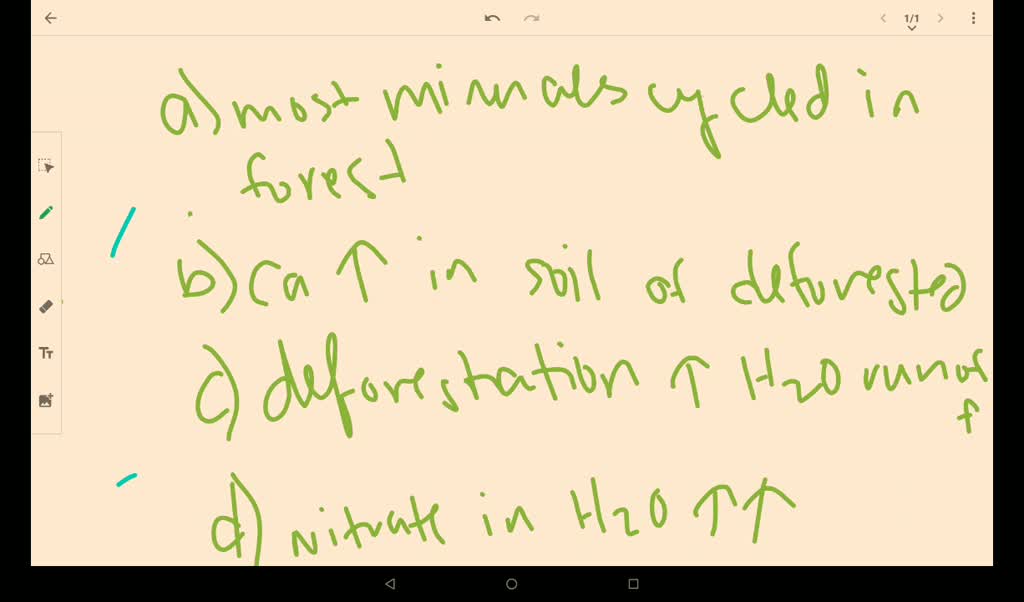 1/1
a) most minnals cycled in
forest
b) Ca ↑ in soil of deforested
c) deforestration ↑ H2O runof
f
d) nitrate in H2O ↑↑
Tт